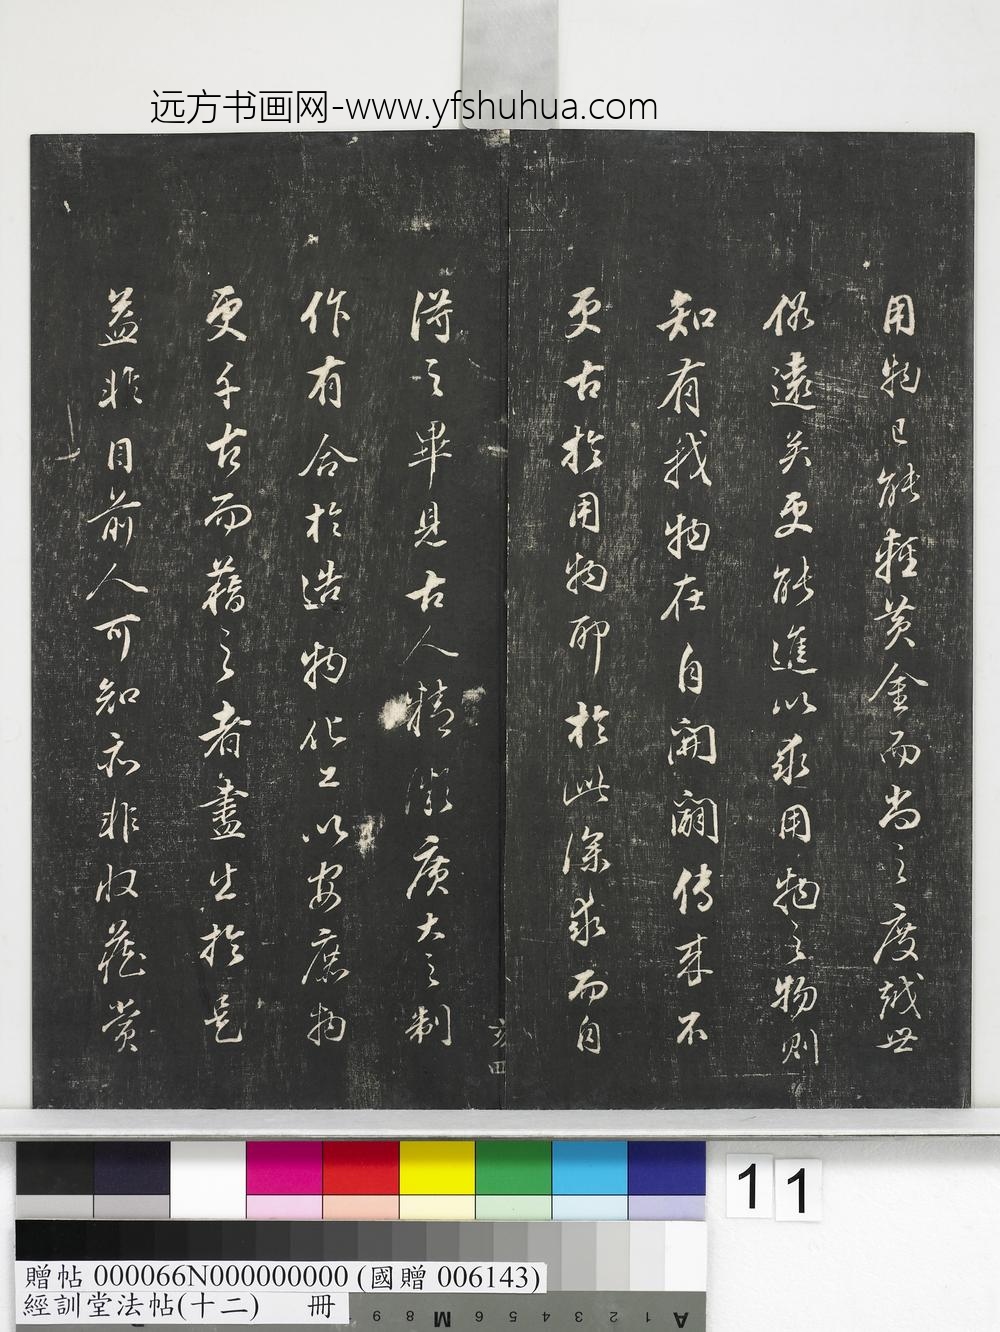 远方书画网-www.yfshuhua.com
用物已能輕黃金而尚之度越世
俗遠矣更能進以求用物之物則
知有我物在自開闢傳来不
更古於用物耶於此深求而自
得之畢見古人精微廣大之制
作有合於造物化工以安庶物
更千古而藉之者盡生於是
蓋非目前人可知亦非收藏賞
亥四
11
贈帖 000066N000000000 (國贈 006143)
經訓堂法帖(十二) 冊
9 8 M 6 5 4 3 2 1 A